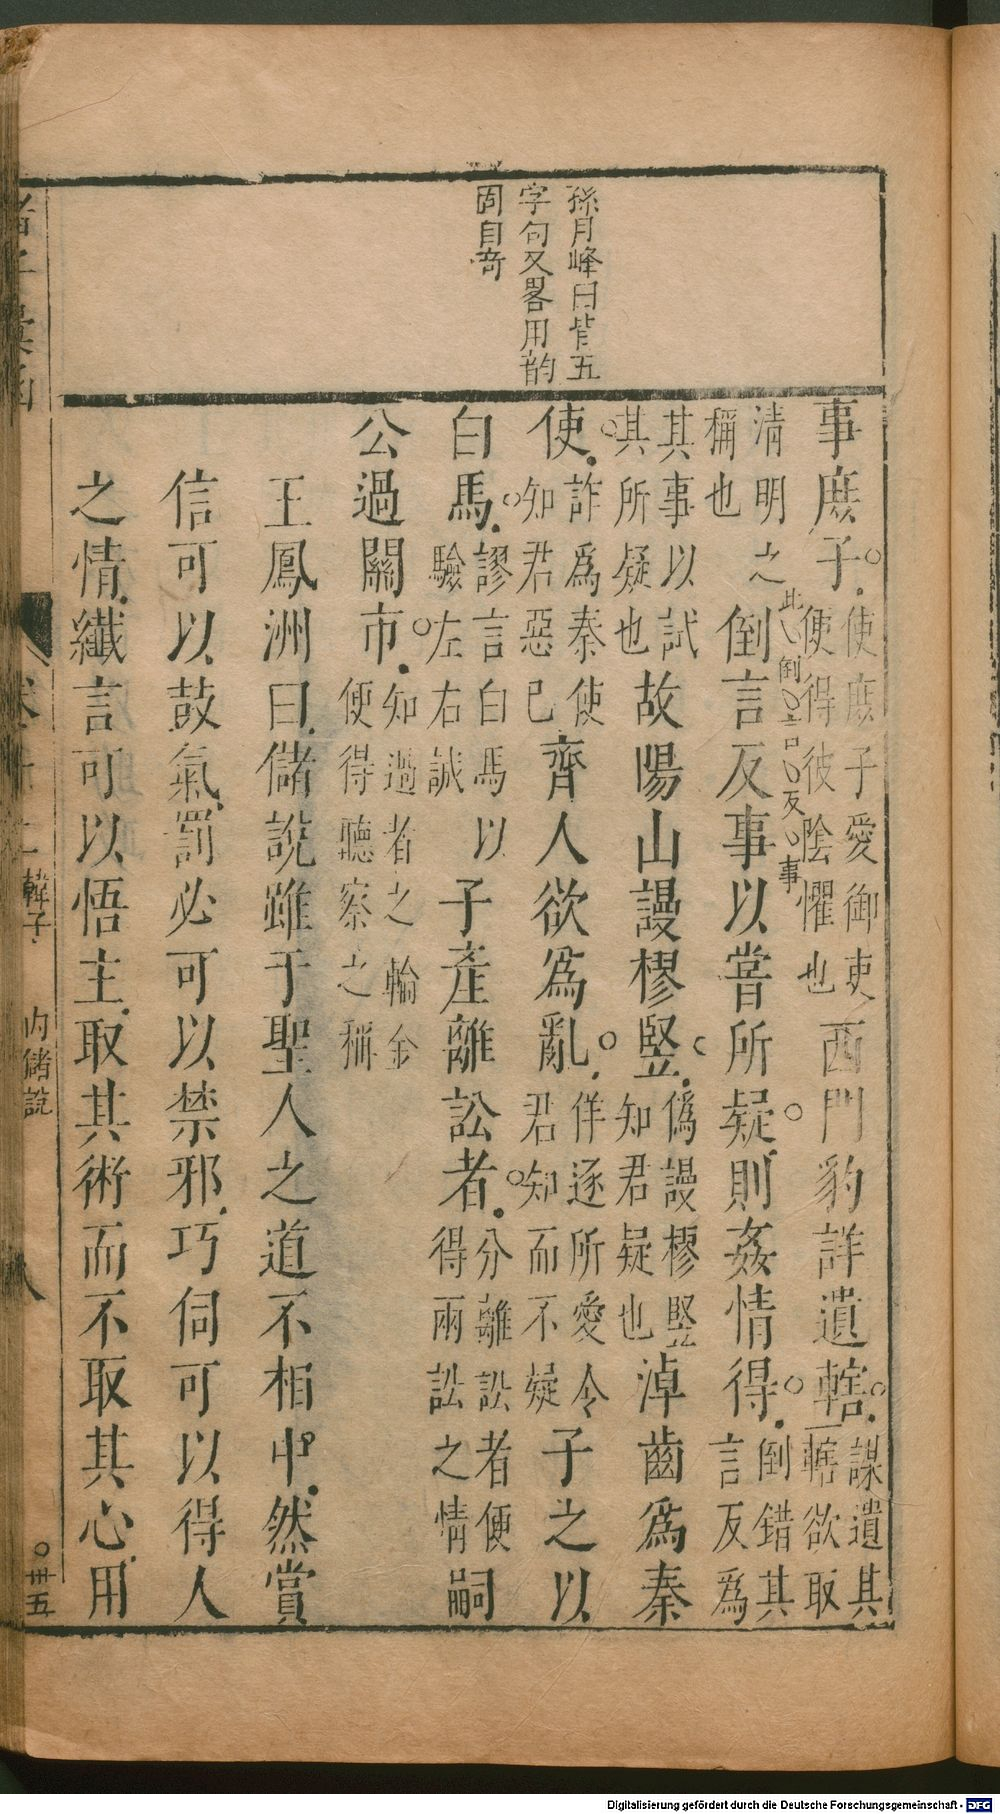 孫月峰曰皆五
字句又畧用韵
固自奇
事庶子。使庶子愛御吏
便得彼陰懼也
西門豹詳遺轄。謀遺其
一轄欲取
清明之
稱也
此倒言反事
倒言反事以嘗所疑。則姦情得。倒錯其
言反爲
其事以試
其所疑也
故陽山謾樛竪。偽謾樛竪
知君疑也
淖齒爲秦
使。詐爲秦使
知君惡己
齊人欲爲亂。佯逐所愛令
君知而不疑
子之以
白馬。謬言白馬以
驗左右誠
子產離訟者。分離訟者便
得兩訟之情
嗣
公過關市。知過者之輸金
便得聽察之稱
王鳳洲曰儲說雖于聖人之道不相中然賞
信可以鼓氣罰必可以禁邪巧伺可以得人
之情纖言可以悟主取其術而不取其心用
韓子 内儲說
八
Digitalisierung gefördert durch die Deutsche Forschungsgemeinschaft - DFG